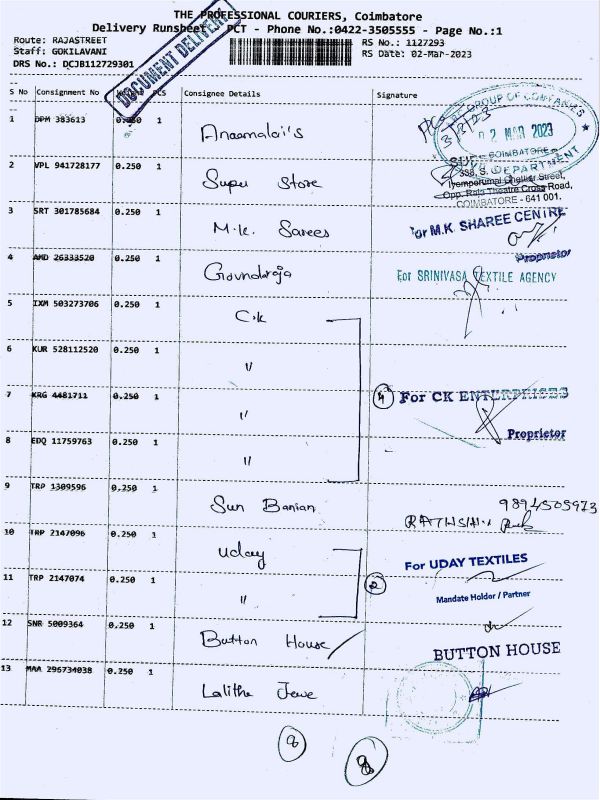 THE PROFESSIONAL COURIERS, Coimbatore
Delivery Runsheet PCT - Phone No.:0422-3505555 - Page No.:1
Route: RAJASTREET
RS No.: 1127293
Staff: GOKILAVANI
RS Date: 02-Mar-2023
DRS No.: DCJB112729301
DOCUMENT DELIVERY
S No Consignment No Weight PCS Consignee Details Signature
1 DPM 383613 0.250 1 Anaamalai's
GROUP OF COMPANIES
3/3/23
02 MAR 2023
COIMBATORE
DEPARTMENT
2 VPL 941728177 0.250 1 Super Store
338, S.
Iyemperumal Chettier Street,
Opp. Raja Theatre Cross Road,
COIMBATORE - 641 001.
3 SRT 301785684 0.250 1 M.K. Sarees
For M.K. SHAREE CENTRE
Proprietor
4 AMD 26333520 0.250 1 Govindaraja
For SRINIVASA TEXTILE AGENCY
5 IXM 503273706 0.250 1 C.K
6 KUR 528112520 0.250 1 "
7 KRG 4481711 0.250 1 "
4 For CK ENTERPRISES
Proprietor
8 EDQ 11759763 0.250 1 "
9 TRP 1309596 0.250 1 Sun Banian
9894505973
10 TRP 2147096 0.250 1 Uday
For UDAY TEXTILES
11 TRP 2147074 0.250 1 "
2
Mandate Holder / Partner
12 SNR 5009364 0.250 1 Button House
BUTTON HOUSE
13 MAA 296734038 0.250 1 Lalitha Jewe
8
8